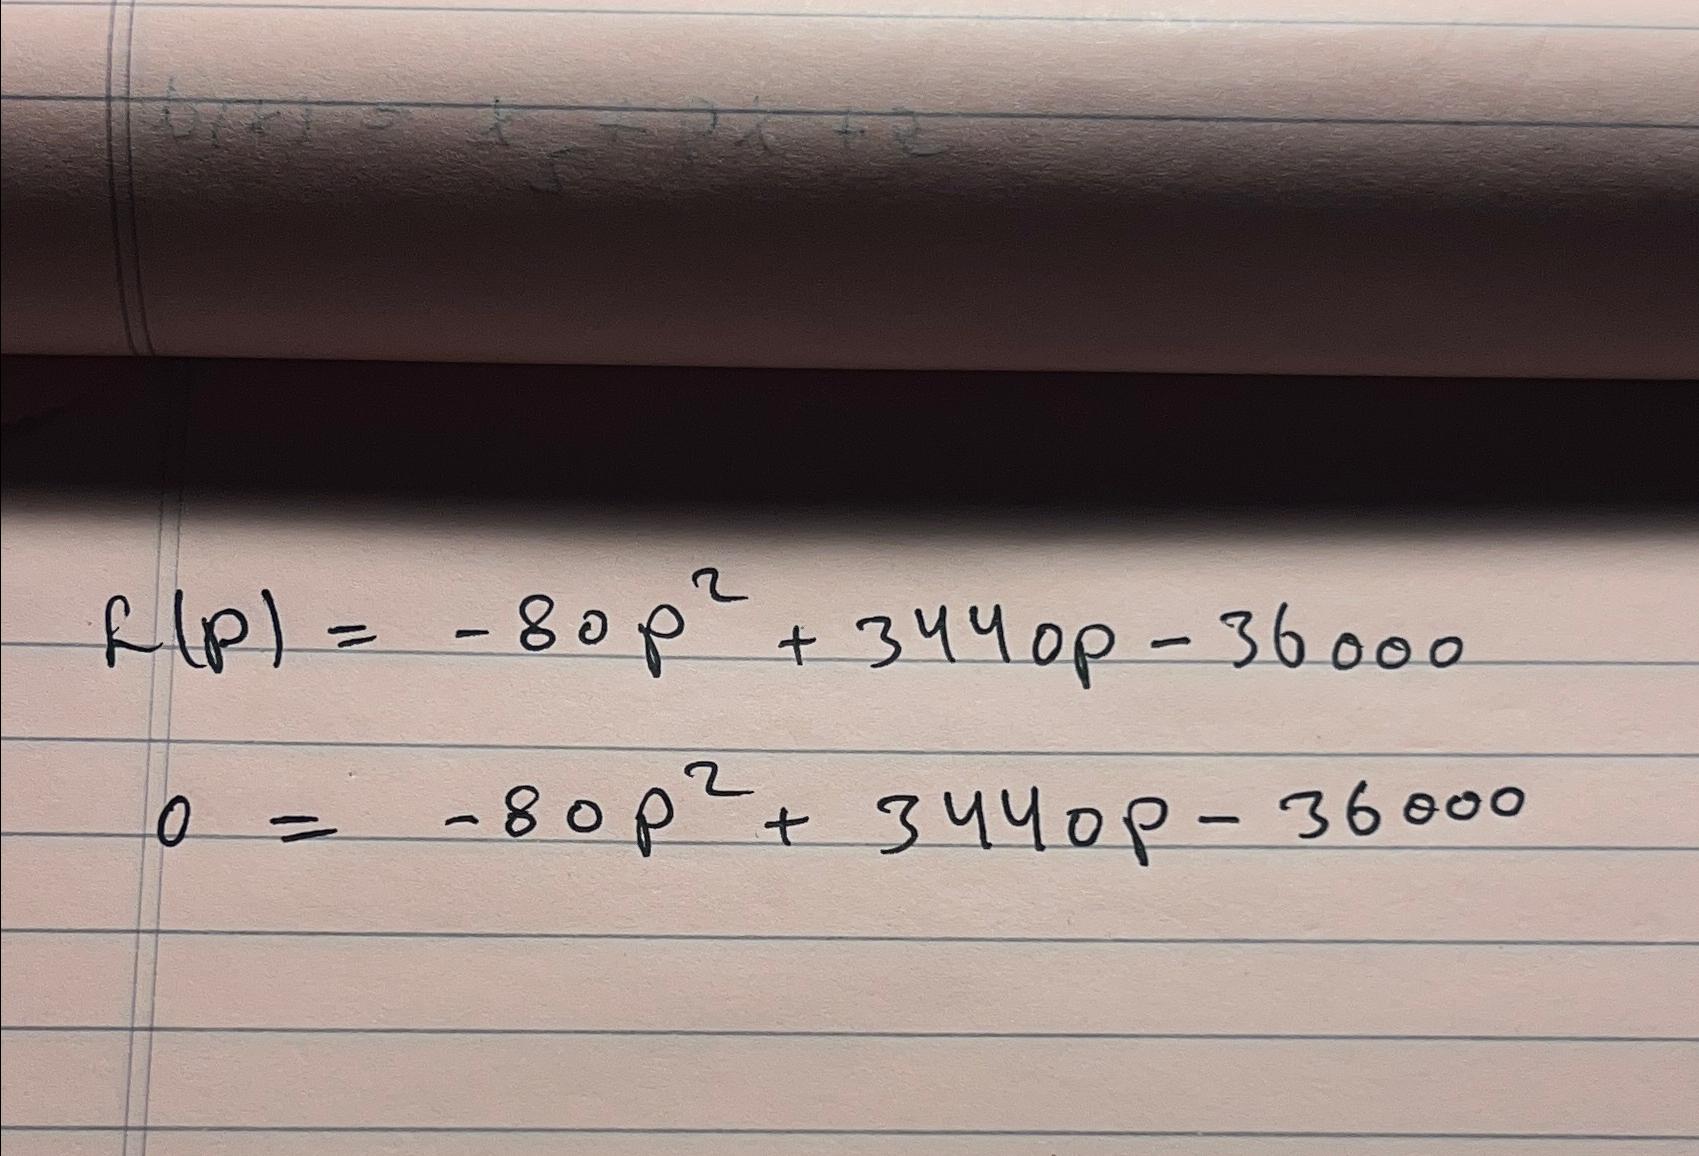 f(p) = -80p² + 3440p - 36000
0 = -80p² + 3440p - 36000